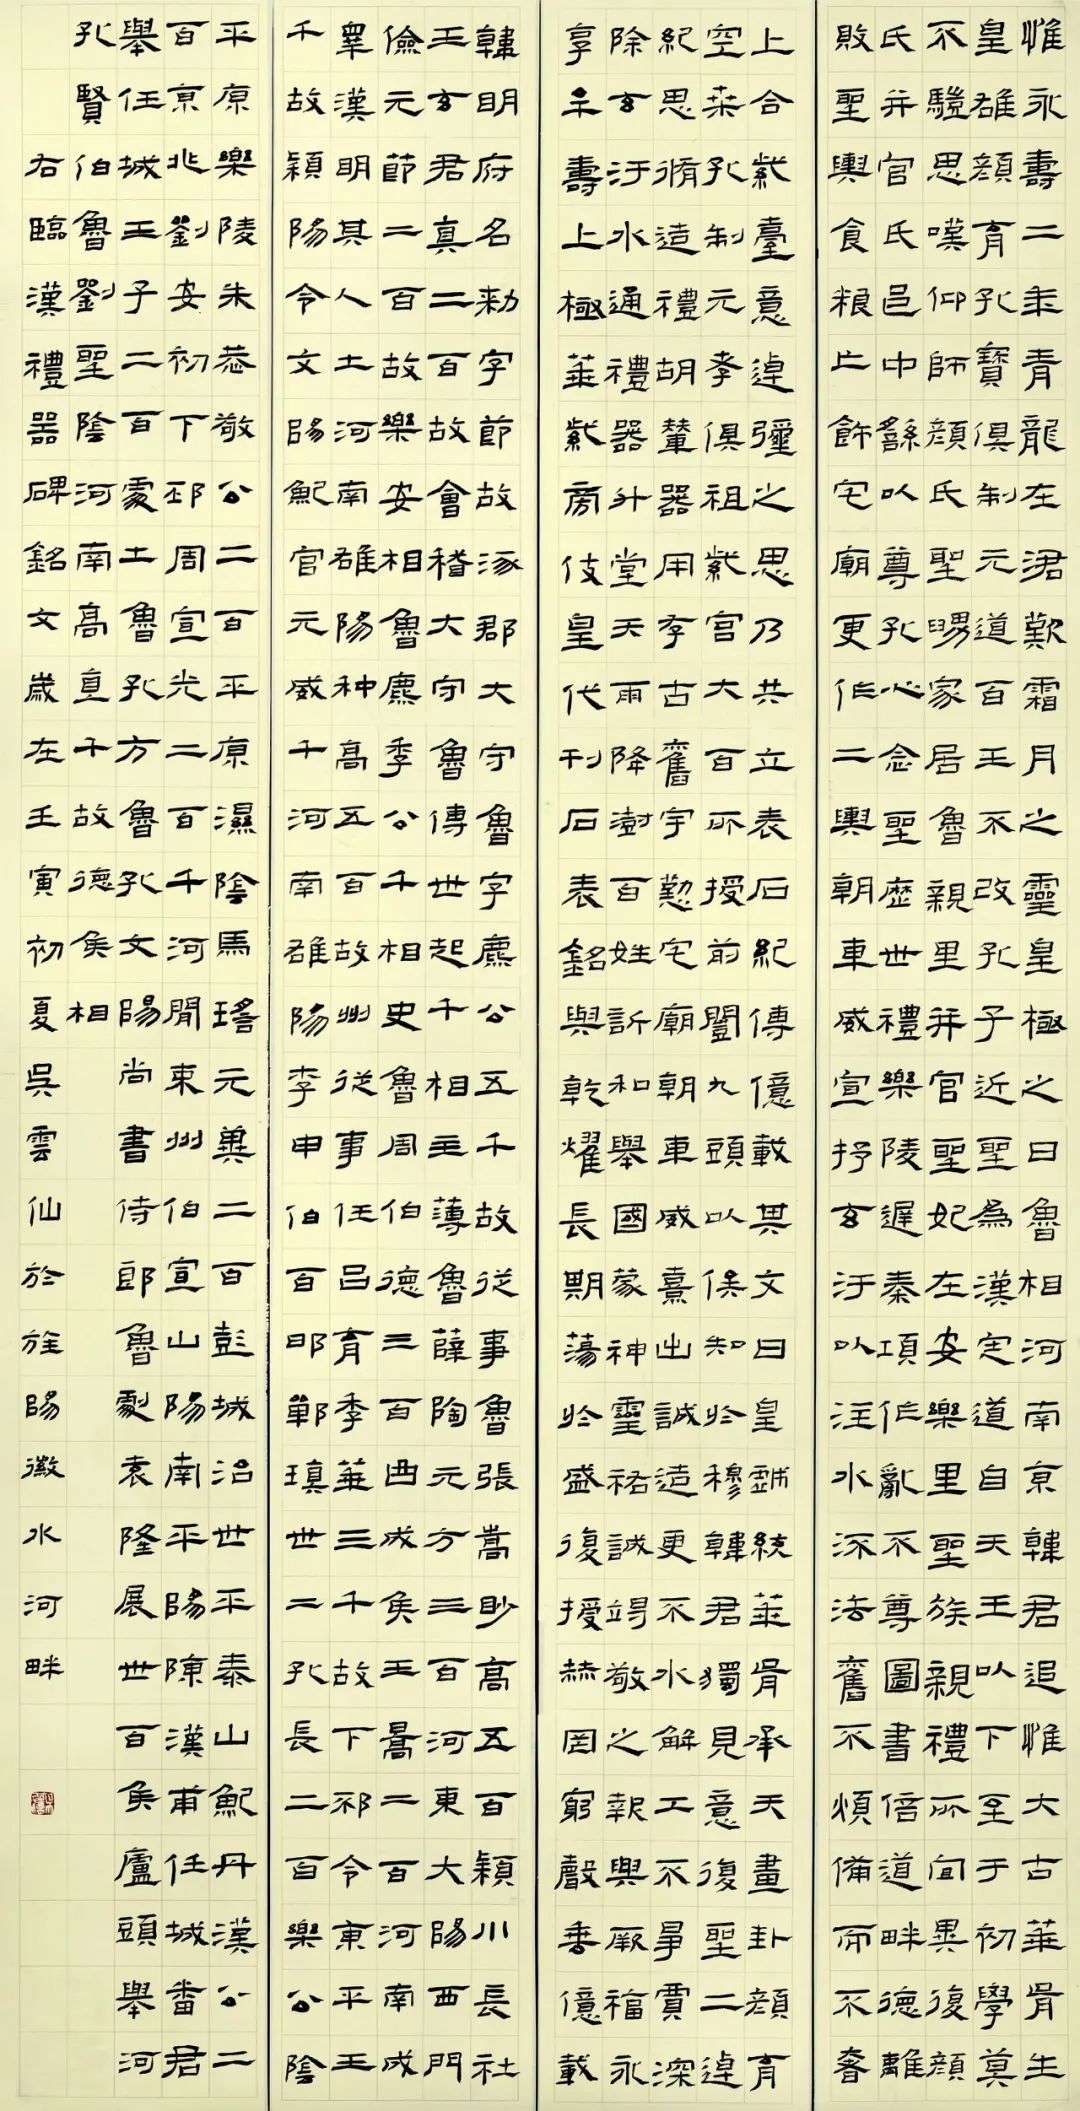 惟永壽二年青龍在涒歎霜月之靈皇極之日魯相河南京韓君追惟大古華胥生
皇雄顏育孔寶俱制元道百王不改孔子近聖為漢定道自天王以下至于初學莫
不驗思嘆仰師顏氏聖舅家居魯親里并官聖妃在安樂里聖族親禮所宜異復顏
氏并官氏邑中繇以尊孔心念聖歷世禮樂陵遲秦項作亂不尊圖書倍道畔德離
敗聖輿食粮亡飾宅廟更作二輿朝車威宣抒玄汙以注水流法舊不煩備而不奢
上合紫臺意逴彌之思乃共立表石紀傳億載其文曰皇戲統華胥承天畫卦顏育
空桒孔制元孝俱祖紫宮大百所授前闓九頭以俟知於穆韓君獨見意復聖二逴
紀思脩造禮胡輦器用存古舊宇慇宅廟朝車威熹出誠造更不水解工不爭賈深
除玄汙水通禮器升堂天雨降澍百姓訢和舉國蒙神靈祐誠竭敬之報與厥福永
享牟壽上極華紫旁伎皇代刊石表銘與乾燿長期蕩於盛復授赫罔窮聲垂億載
韓明府名勑字節故涿郡大守魯字麃公五千故從事魯張嵩眇高五百穎川長社
王玄君真二百故會稽大守魯傅世起千相主薄魯薛陶元方三百河東大陽西門
儉元節二百故樂安相魯麃季公千相史魯周伯德三百西成侯王暠二百河南成
皋漢明其人土河南雒陽种高五百故州從事任呂育季華三千故下邳令東平王
千故穎陽令文陽鮑官元威千河南雒陽李申伯百邯鄲瑱世二孔長二百樂公陰
平原樂陵朱恭敬公二百平原濕陰馬瑤元冀二百彭城世平泰山鮑丹漢公二
百京兆劉安初下邳周宣光二百千河間東州伯宣山陽南平陽陳漢甫任城番君
舉任城王子二百處土魯孔方魯孔文陽尚書侍郎魯劇袁隆展世百侯盧頭舉河
孔賢伯魯劉聖陰河南高直千故德侯相
右臨漢禮器碑銘文歲在壬寅初夏吳雲仙於旌陽徽水河畔